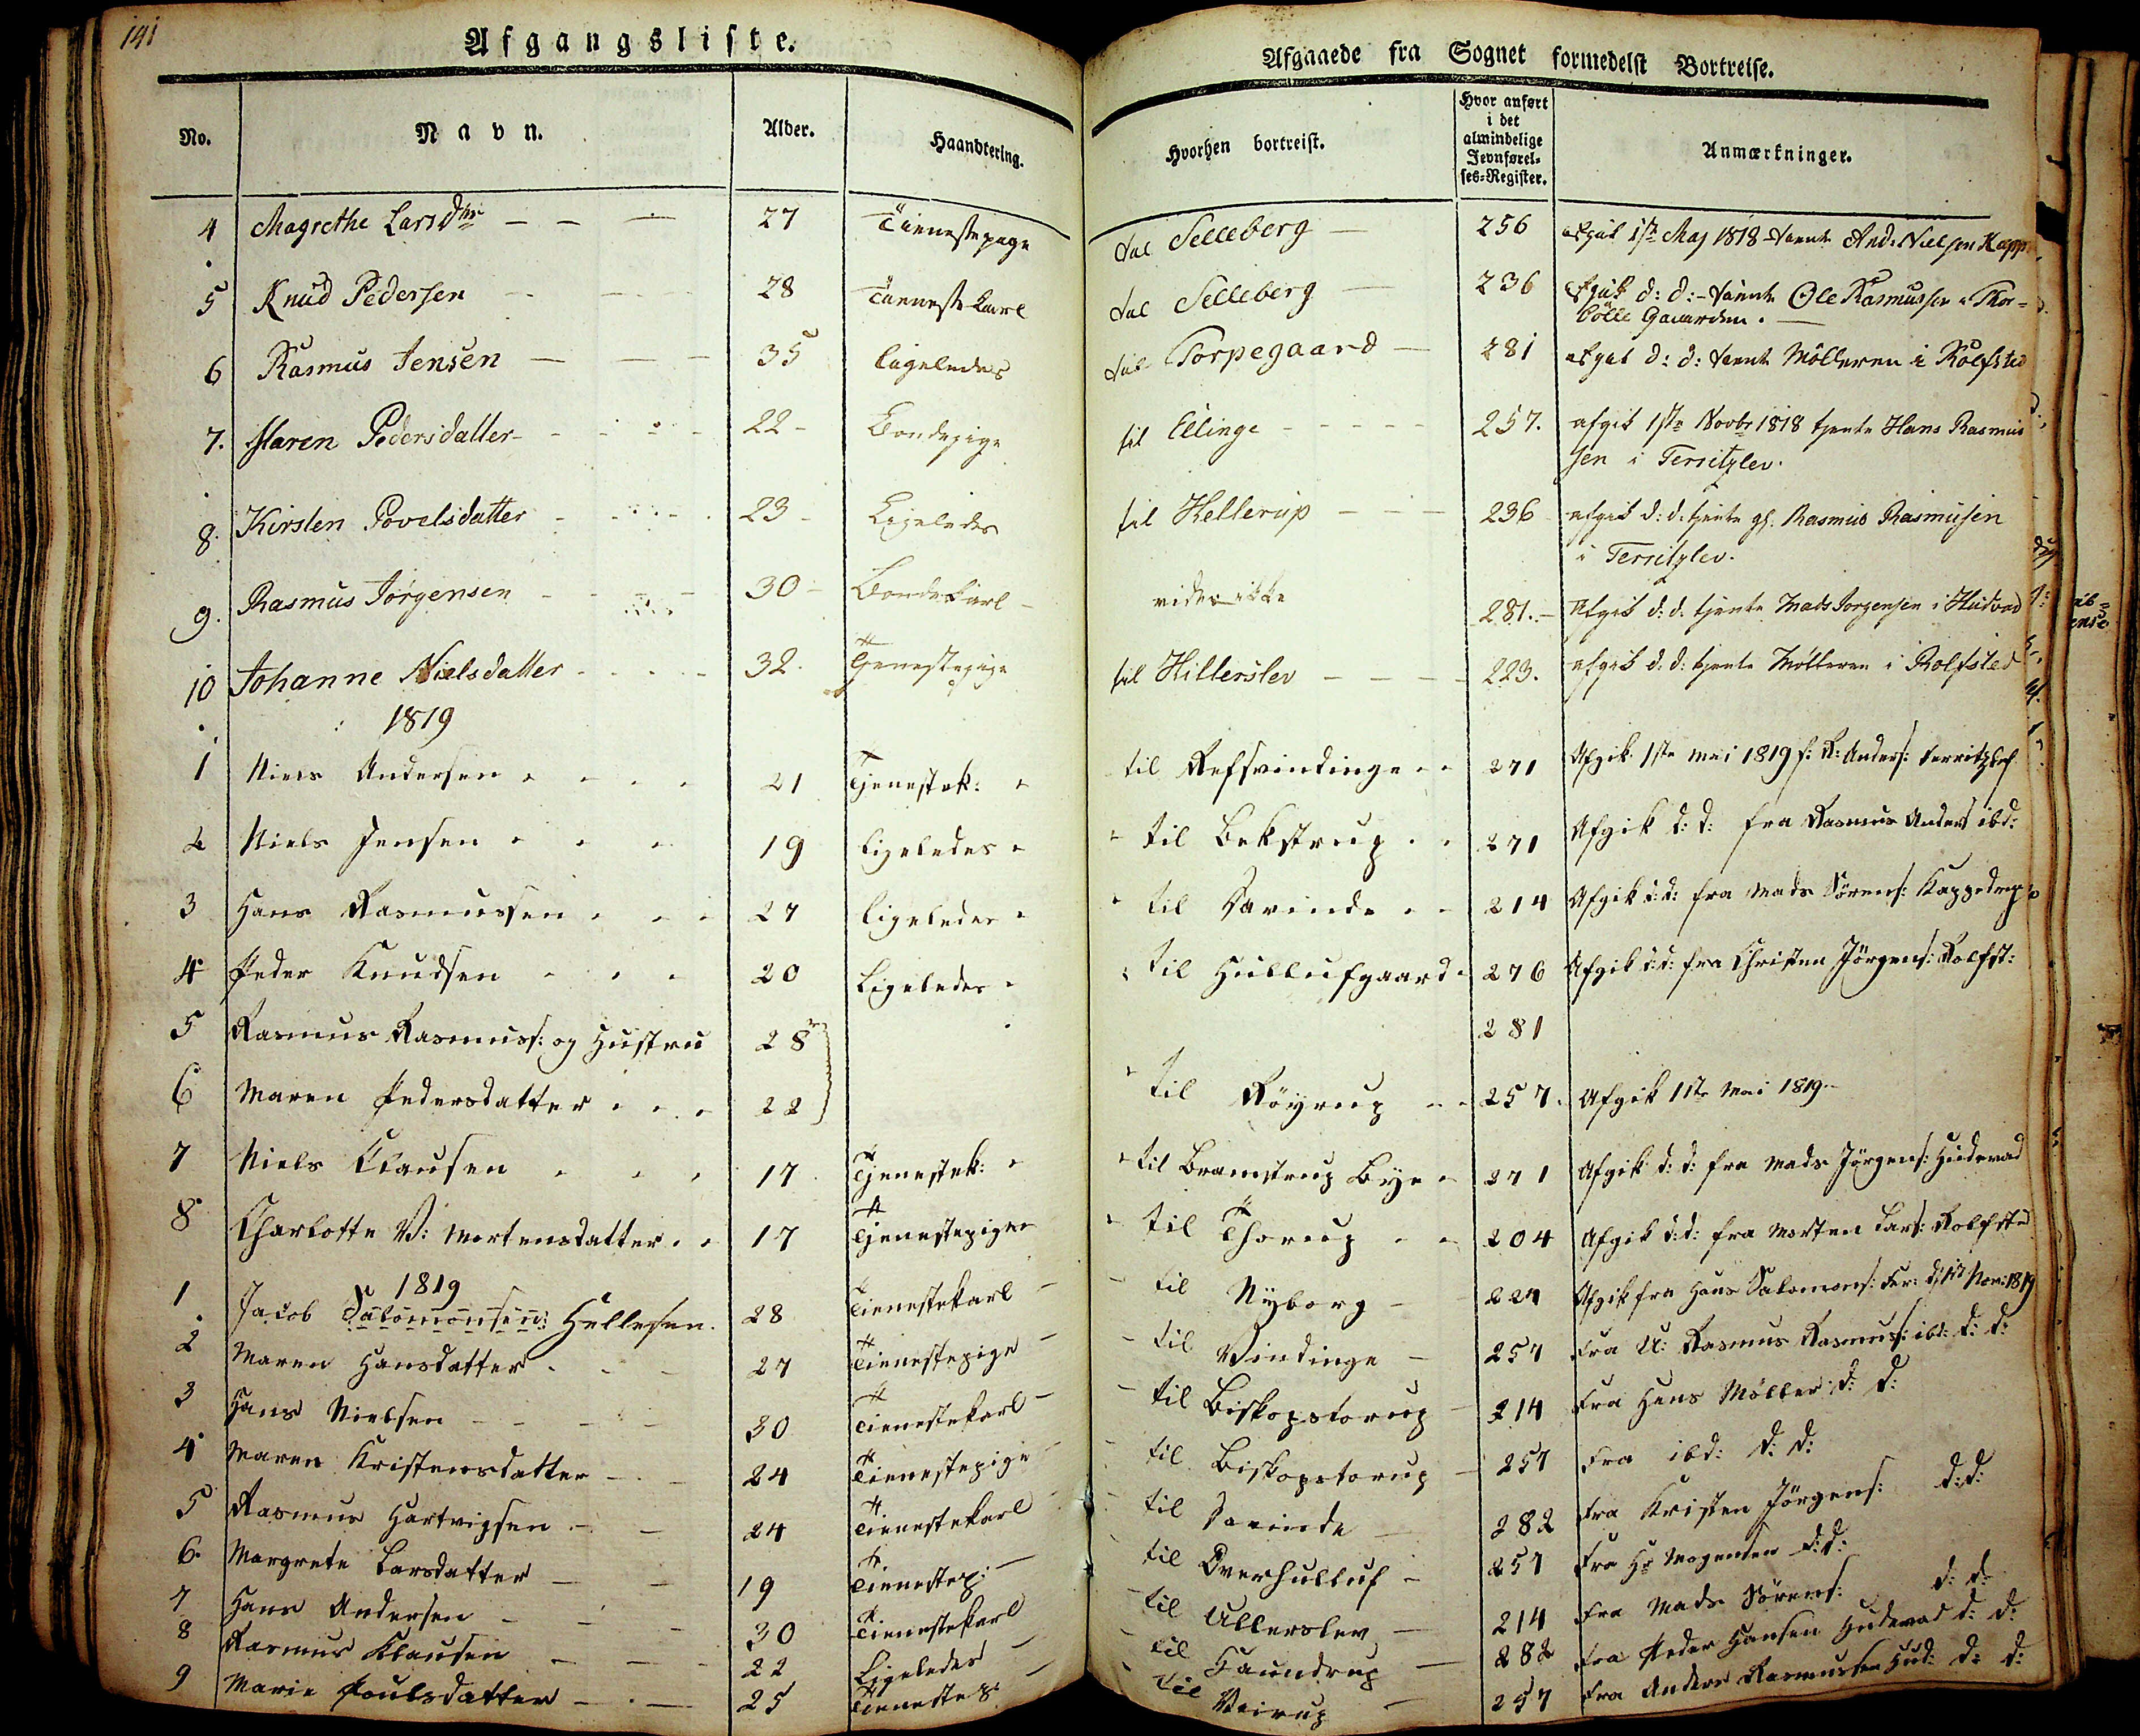 141
Afgangsliste.
Afgaaede fra Sognet formedelst Bortreise.
No. Navn. Alder. Haandtering. Hvorhen bortreist. Hvor anført i det almindelige Jevnførelses-Register. Anmærkninger.
4 Magrethe Larsdtr 27 Tienestepige til Selleberg 256 afgik 1ste Maj 1818 tiente And: Nielsen Kapp
5 Knud Pedersen 28 Tieneste Karl til Selleberg 236 Afgik d: d: tiente Ole Rasmussen i Thor=
bölle Gaarden.
6 Rasmus Jensen 35 ligeledes til Torpegaard 281 afgik d: d: tiente Mölleren i Rolfsted
7. Maren Pedersdatter 22 Bondepige til Ellinge 257. afgik 1ste Novbr 1818 tjente Hans Rasmus
sen i Territzlev.
8. Kirsten Povelsdatter 23 Ligeledes til Hellerup 236 afgik d: d. tjente gl. Rasmus Rasmusen
i Territzlev.
9. Rasmus Jörgensen 30 Bondekarl vides ikke 281. Afgik d: d. tjente Mads Jorgensen i Hudvad
10 Johanne Nielsdatter 32. Tjenestepige til Hillerslev 223. afgik d. d: tjente Mölleren i Rolfsted
1819
1 Niels Andersen 21 Tjenestek: til Refsvindinge 271 Afgik 1ste Mai 1819 f: R: Anders: Territzlef
2 Niels Jensen 19 ligeledes til Bekstrup 271 Afgik d: d: fra Rasmus Anders ibd:
3 Hans Rasmussen 27 ligeledes til Davinde 214 Afgik d: d: fra Mads Sörens: Kappedrup
4 Peder Knudsen 20 Ligeledes til Hullufgaard 276 Afgik d: d: fra Christen Jörgens: Rolfst:
5 Rasmus Rasmuss: og Hustru 28 281
6 Maren Pedersdatter 22 til Röyrup 257. Afgik 1ste Mai 1819
7 Niels Clausen 17 Tjenestek: til Bramstrup Bye 271 Afgik d: d: fra Mads Jörgens: Hudevad
8 Charlotte V: Mortensdatter 17 Tjenestepige til Thorup 204 Afgik d: d: fra Morten Lars: Rolfsted
1819
1 Jacob Salomonsen: Hellesen. 28 Tienestekarl til Nyborg 224 Afgik fra Hans Salomons: Fer: 1st Nov: 1819
2 Maren Hansdatter 27 Tienestepige til Vindinge 257 Fra U: Rasmus Rasmuss: ibd: d: d:
3 Hans Nielsen 30 Tienestekarl til Biskopstorup 214 Fra Hans Möller d: d:
4 Maren Kristensdatter 24 Tienestepige til Biskopstorup 257 Fra ibd: d: d:
5 Rasmus Hartvigsen 24 Tienestekarl til Davinde 282 Fra Kristen Jörgens: d: d:
6. Margrete Larsdatter 19 Tienestep: til Overhulluf 257 Fra Hr Mogensen d: d:
7 Hans Andersen 30 Tienestekarl til Ullerslev 214 Fra Mads Sörens: d: d:
8 Rasmus Klausen 22 Ligeledes til Faundrup 282 Fra Peder Hansen Hudevad d: d:
9 Marie Poulsdatter 25 Tienestep: til Veirup 257 Fra Anders Rasmussen Hud: d: d: